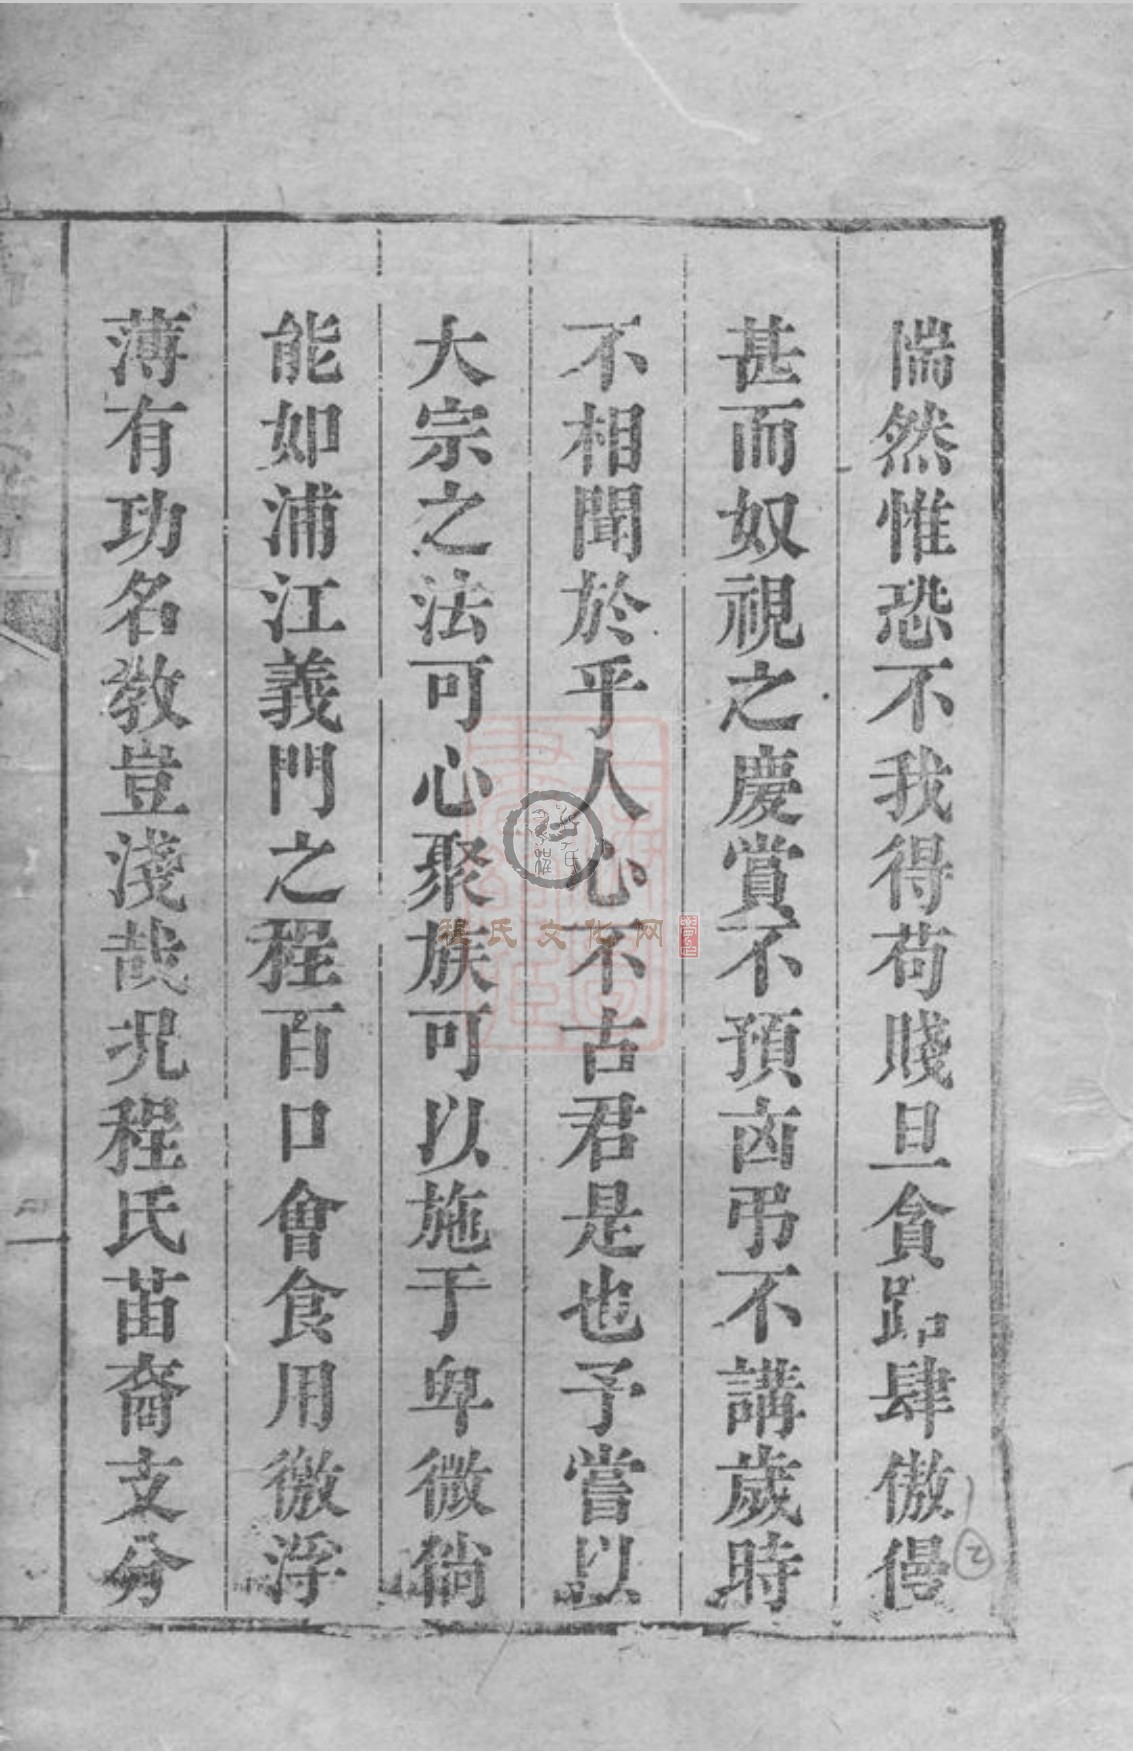 惴然惟恐不我得苟賤旦貪䟽肆傲僈
甚而奴視之慶賞不預凶弔不講歲時
不相聞於乎人心不古君是也予嘗以
大宗之法可心聚族可以施于卑微倘
能如浦江義門之程百口會食用徼浮
薄有功名教豈淺哉況程氏苗裔支分
程氏文化网